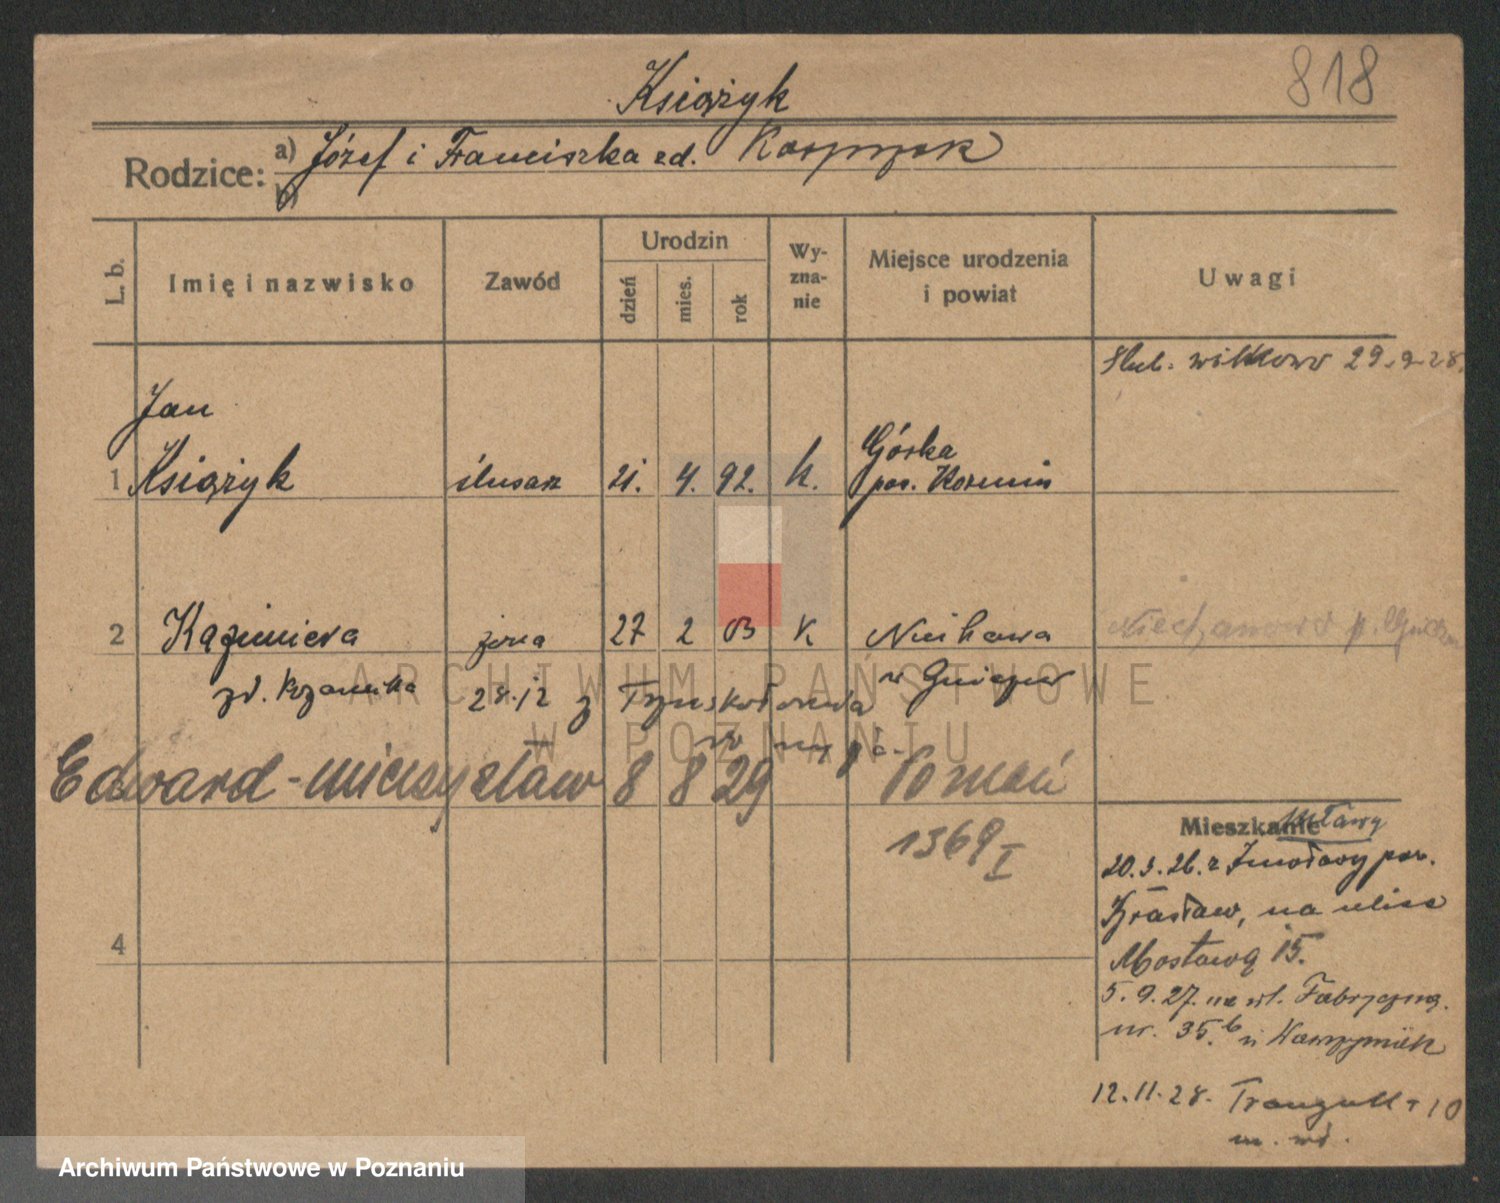 818
Książyk
Rodzice: a) Józef i Franciszka zd. Kasprzak
b)
L. b. Imię i nazwisko Zawód Urodzin dzień mies. rok Wy-zna-nie Miejsce urodzenia i powiat Uwagi
ślub. Witkowo 29.9.28.
Jan
1 Książyk ślusarz 21. 4. 92. k. Górka
pow. Koźmin
2 Kazimiera żona 27 2 03 K Niechanowo p. Gniezno
zd. 28.12 z w Gniezno
Edward-Mieczysław 8 8 29 Poznań
1369 I
4
Mieszkanie
20.3.26. z pow.
na ulice
Mostową 15.
5.9.27. na ul. Fabryczną.
nr. 35.b u Kasprzyniak
12.11.28. 10
ARCHIWUM PAŃSTWOWE
W POZNANIU
Archiwum Państwowe w Poznaniu